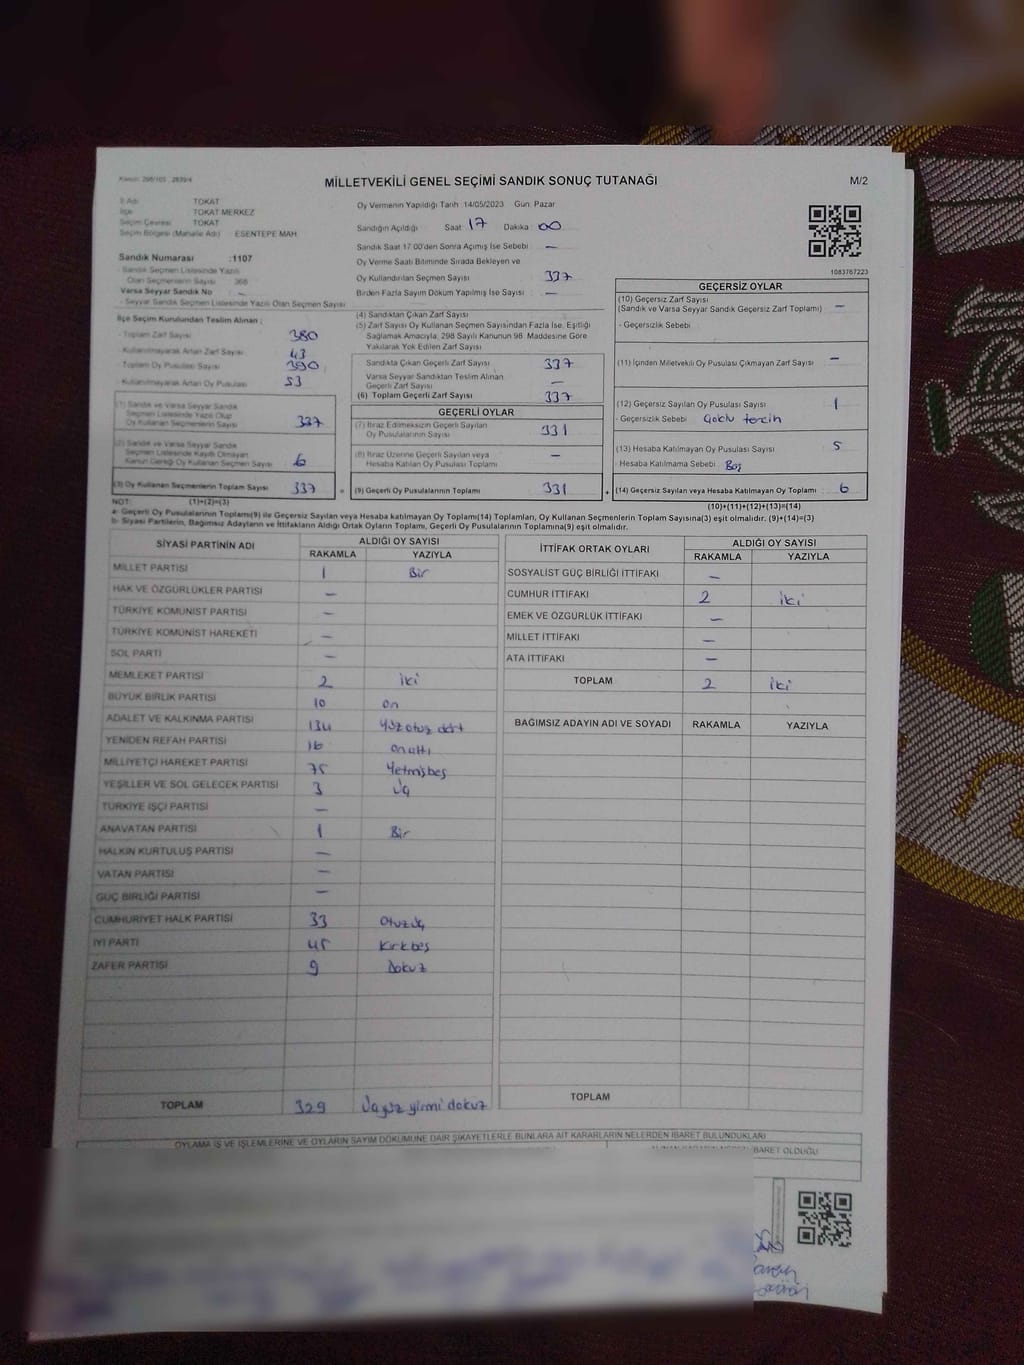 Kanun: 298/105 , 2839/4
MİLLETVEKİLİ GENEL SEÇİMİ SANDIK SONUÇ TUTANAĞI
M/2
İl Adı TOKAT
İlçe TOKAT MERKEZ
Seçim Çevresi TOKAT
Seçim Bölgesi (Mahalle Adı) ESENTEPE MAH
Sandık Numarası :1107
- Sandık Seçmen Listesinde Yazılı
Olan Seçmenlerin Sayısı : 368
Varsa Seyyar Sandık No : -
- Seyyar Sandık Seçmen Listesinde Yazılı Olan Seçmen Sayısı
İlçe Seçim Kurulundan Teslim Alınan ;
- Toplam Zarf Sayısı 380
- Kullanılmayarak Artan Zarf Sayısı 43
- Toplam Oy Pusulası Sayısı 390
- Kullanılmayarak Artan Oy Pusulası 53
(1) Sandık ve Varsa Seyyar Sandık
Seçmen Listesinde Yazılı Olup
Oy Kullanan Seçmenlerin Sayısı
(2) Sandık ve Varsa Seyyar Sandık
Seçmen Listesinde Kayıtlı Olmayan
Kanun Gereği Oy Kullanan Seçmen Sayısı 6
(3) Oy Kullanan Seçmenlerin Toplam Sayısı 337
(1)+(2)=(3)
Oy Vermenin Yapıldığı Tarih 14/05/2023 Gün: Pazar
Sandığın Açıldığı Saat: 17 Dakika: 00
Sandık Saat 17.00'den Sonra Açılmış İse Sebebi : -
Oy Verme Saati Bitiminde Sırada Bekleyen ve
Oy Kullandırılan Seçmen Sayısı : 337
Birden Fazla Sayım Döküm Yapılmış İse Sayısı : -
(4) Sandıktan Çıkan Zarf Sayısı
(5) Zarf Sayısı Oy Kullanan Seçmen Sayısından Fazla İse, Eşitliği
Sağlamak Amacıyla, 298 Sayılı Kanunun 98. Maddesine Göre
Yakılarak Yok Edilen Zarf Sayısı
Sandıkta Çıkan Geçerli Zarf Sayısı 337
Varsa Seyyar Sandıktan Teslim Alınan
Geçerli Zarf Sayısı -
(6) Toplam Geçerli Zarf Sayısı 337
GEÇERLİ OYLAR
(7) İtiraz Edilmeksizin Geçerli Sayılan
Oy Pusulalarının Sayısı 331
(8) İtiraz Üzerine Geçerli Sayılan veya
Hesaba Katılan Oy Pusulası Toplamı -
(9) Geçerli Oy Pusulalarının Toplamı 331
1083767223
GEÇERSİZ OYLAR
(10) Geçersiz Zarf Sayısı
(Sandık ve Varsa Seyyar Sandık Geçersiz Zarf Toplamı) : -
- Geçersizlik Sebebi
(11) İçinden Milletvekili Oy Pusulası Çıkmayan Zarf Sayısı : -
(12) Geçersiz Sayılan Oy Pusulası Sayısı : 1
- Geçersizlik Sebebi : Çoklu tercih
(13) Hesaba Katılmayan Oy Pusulası Sayısı : 5
- Hesaba Katılmama Sebebi : Boş
+ (14) Geçersiz Sayılan veya Hesaba Katılmayan Oy Toplamı : 6
(10)+(11)+(12)+(13)=(14)
NOT:
a- Geçerli Oy Pusulalarının Toplamı(9) ile Geçersiz Sayılan veya Hesaba katılmayan Oy Toplamı(14) Toplamları, Oy Kullanan Seçmenlerin Toplam Sayısına(3) eşit olmalıdır. (9)+(14)=(3)
b- Siyasi Partilerin, Bağımsız Adayların ve İttifakların Aldığı Ortak Oyların Toplamı, Geçerli Oy Pusulalarının Toplamına(9) eşit olmalıdır.
SİYASİ PARTİNİN ADI ALDIĞI OY SAYISI
RAKAMLA YAZIYLA
MİLLET PARTİSİ 1 Bir
HAK VE ÖZGÜRLÜKLER PARTİSİ -
TÜRKİYE KOMÜNİST PARTİSİ -
TÜRKİYE KOMÜNİST HAREKETİ -
SOL PARTİ -
MEMLEKET PARTİSİ 2 iki
BÜYÜK BİRLİK PARTİSİ 10 on
ADALET VE KALKINMA PARTİSİ 134 Yüz otuz dört
YENİDEN REFAH PARTİSİ 16 on altı
MİLLİYETÇİ HAREKET PARTİSİ 75 Yetmişbeş
YEŞİLLER VE SOL GELECEK PARTİSİ 3 üç
TÜRKİYE İŞÇİ PARTİSİ -
ANAVATAN PARTİSİ 1 Bir
HALKIN KURTULUŞ PARTİSİ -
VATAN PARTİSİ -
GÜÇ BİRLİĞİ PARTİSİ -
CUMHURİYET HALK PARTİSİ 33 Otuzüç
İYİ PARTİ 45 Kırkbeş
ZAFER PARTİSİ 9 Dokuz
TOPLAM 329 Üçyüz yirmi dokuz
İTTİFAK ORTAK OYLARI ALDIĞI OY SAYISI
RAKAMLA YAZIYLA
SOSYALİST GÜÇ BİRLİĞİ İTTİFAKI -
CUMHUR İTTİFAKI 2 iki
EMEK VE ÖZGÜRLÜK İTTİFAKI -
MİLLET İTTİFAKI -
ATA İTTİFAKI -
TOPLAM 2 iki
BAĞIMSIZ ADAYIN ADI VE SOYADI RAKAMLA YAZIYLA
TOPLAM
OYLAMA İŞ VE İŞLEMLERİNE VE OYLARIN SAYIM DÖKÜMÜNE DAİR ŞİKAYETLERLE BUNLARA AİT KARARLARIN NELERDEN İBARET BULUNDUKLARI
İBARET OLDUĞU